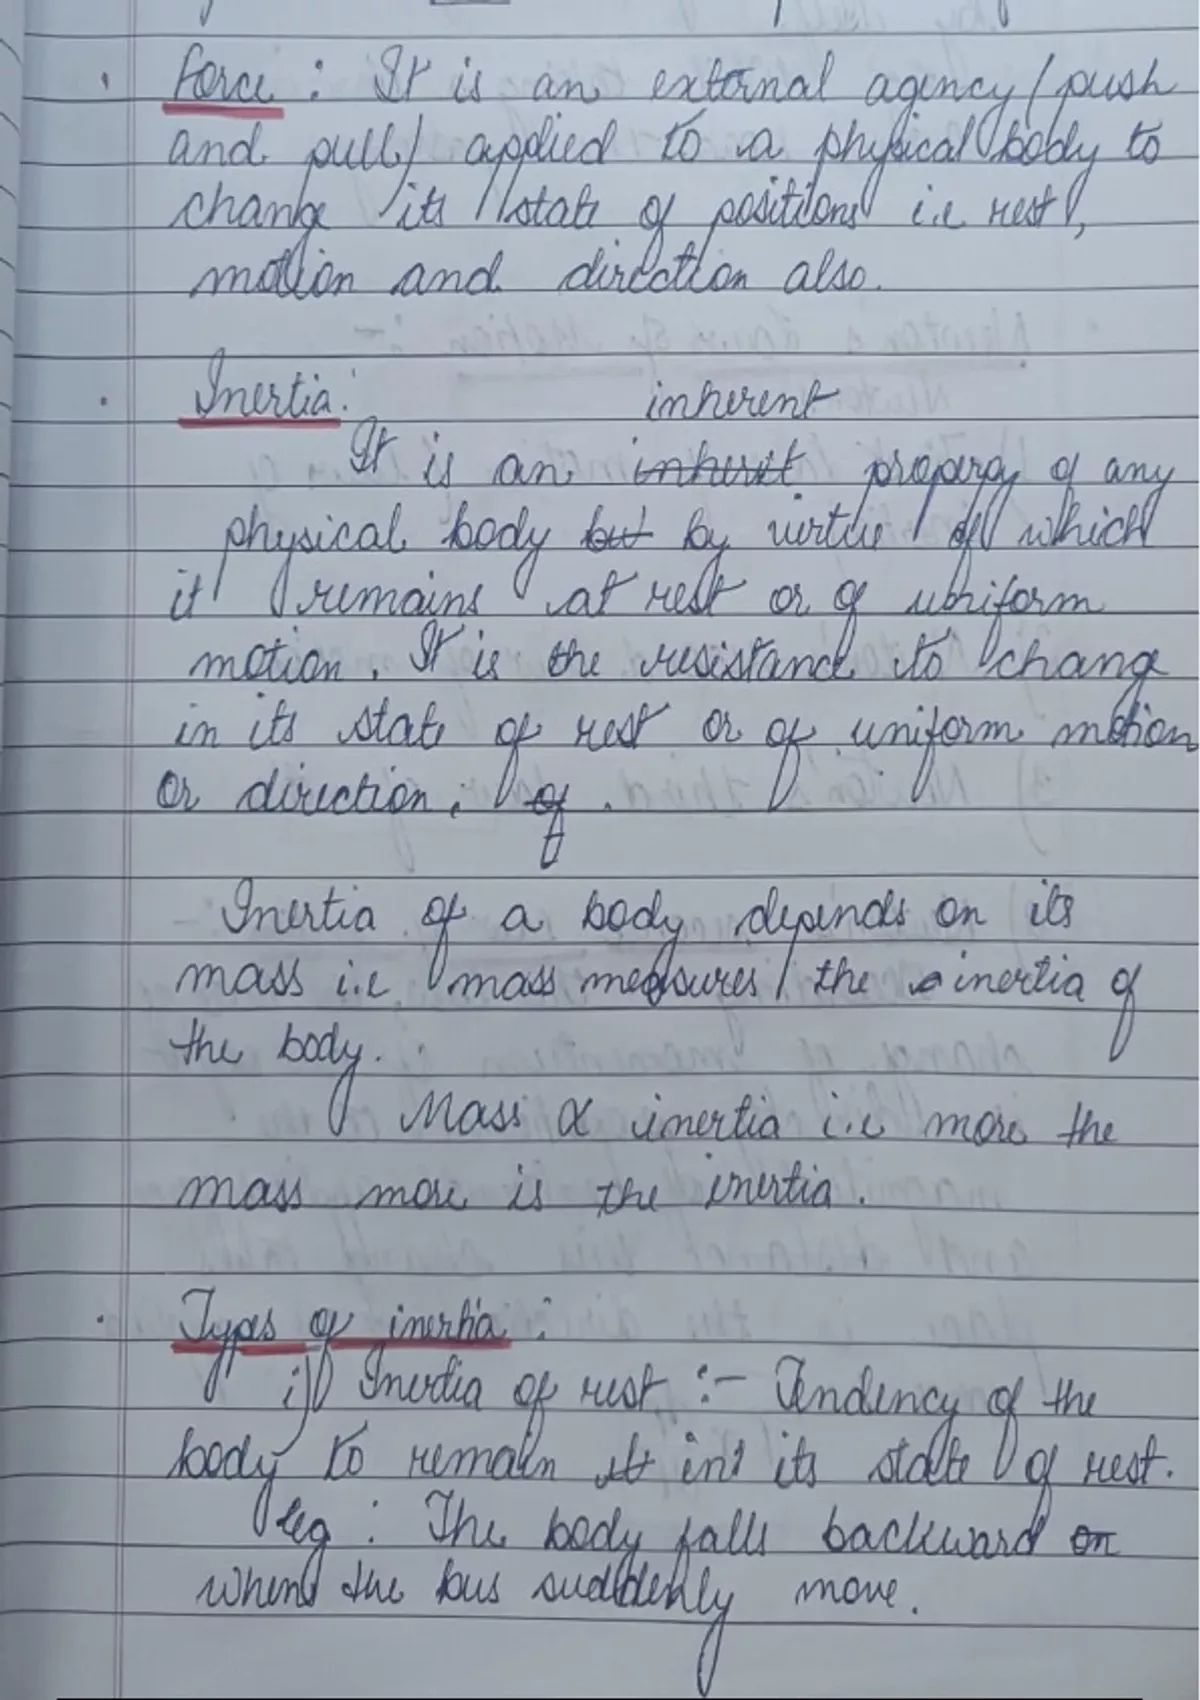 Force : It is an external agency / push
and pull / applied to a physical body to
change its state of positions i.e rest,
motion and direction also.
Inertia :
inherent
It is an inherit property of any
physical body but by virtue of which
it remains at rest or of uniform
motion. It is the resistance to change
in its state of rest or of uniform motion
or direction. of .
Inertia of a body depends on its
mass i.e mass measures the inertia of
the body.
Mass α inertia i.e more the
mass more is the inertia.
Types of inertia :
i) Inertia of rest :- Tendency of the
body to remain it in its state of rest.
eg : The body falls backward on
when the bus suddenly move.